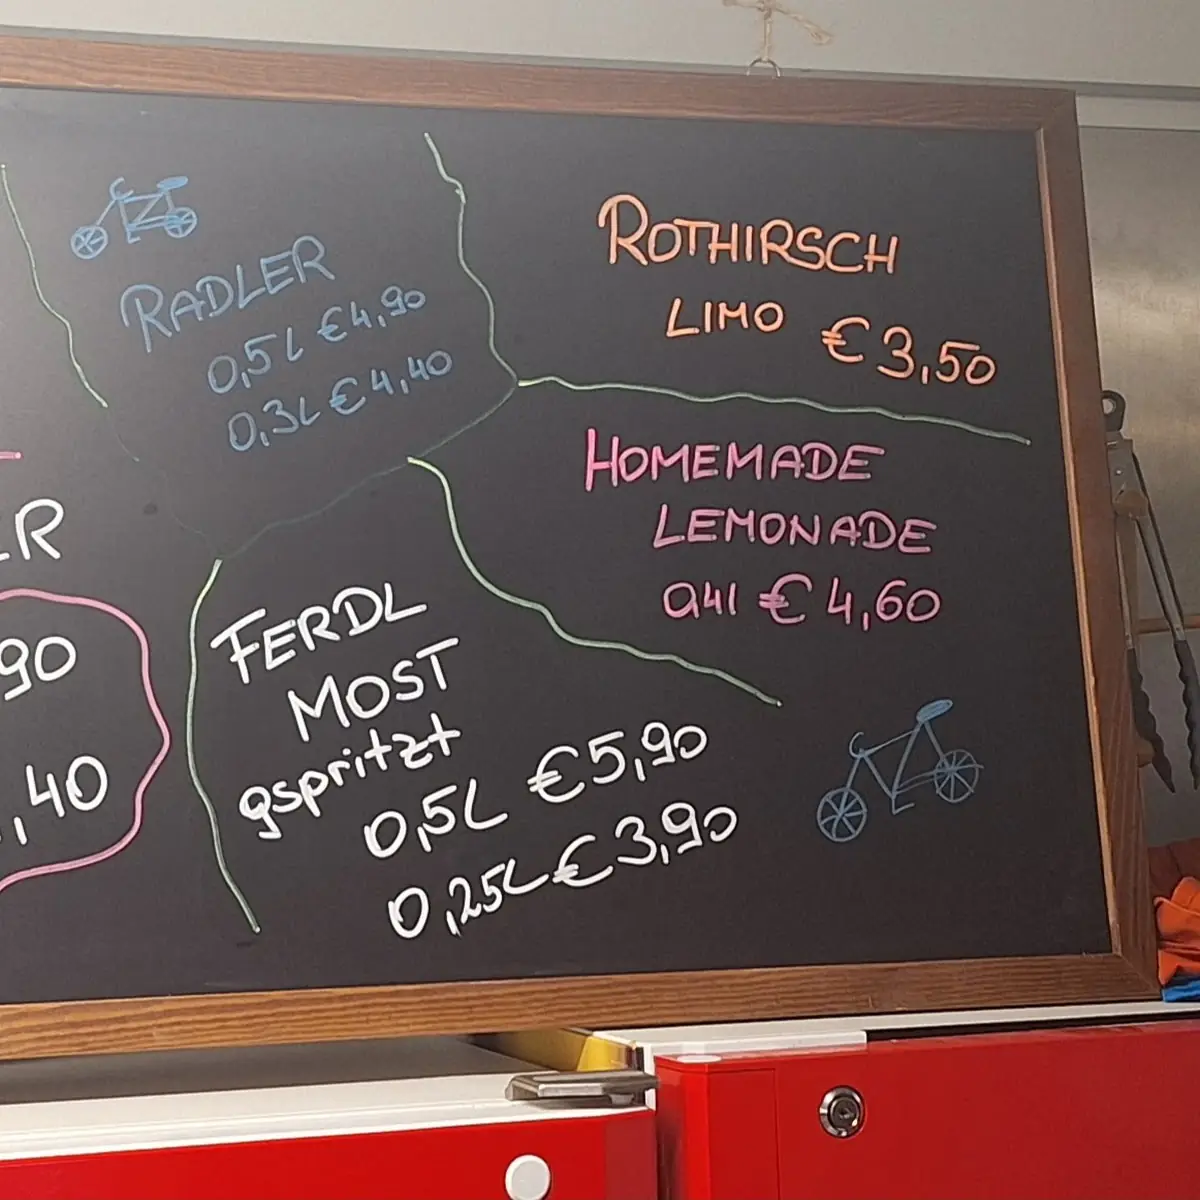 RADLER
0,5L €4,90
0,3L €4,40
ROTHIRSCH
LIMO €3,50
HOMEMADE
LEMONADE
0,4l € 4,60
FERDL
MOST
gspritzt
0,5L €5,90
0,25L € 3,90
ER
90
,40